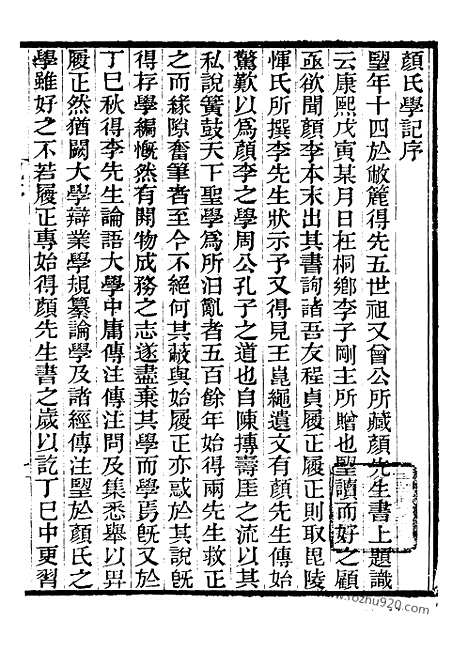 顏氏學記序
朢年十四於敝簏得先五世祖又曾公所藏顏先生書上題識
云康熙戊寅某月日在桐鄉李子剛主所贈也朢讀而好之顧
亟欲聞顏李本末出其書詢諸吾友程貞履正履正則取毘陵
惲氏所撰李先生狀示予又得見王崑繩遺文有顏先生傳始
驚歎以爲顏李之學周公孔子之道也自陳摶壽厓之流以其
私說簧鼓天下聖學爲所汩亂者五百餘年始得兩先生救正
之而緣隙奮筆者至今不絕何其蔽與始履正亦惑於其說旣
得存學編慨然有開物成務之志遂盡棄其學而學焉旣又於
丁巳秋得李先生論語大學中庸傳注傳注問及集悉舉以畀
履正然猶闕大學辯業學規纂論學及諸經傳注朢於顏氏之
學雖好之不若履正專始得顏先生書之歲以訖丁巳中更習
www.rozhu920.com